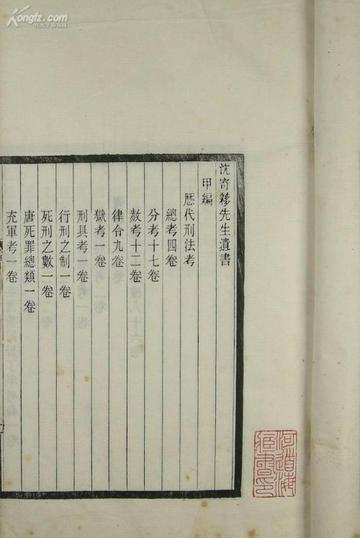 沈寄簃先生遺書
甲編
歷代刑法考
總考四卷
分考十七卷
赦考十二卷
律令九卷
獄考一卷
刑具考一卷
行刑之制一卷
死刑之數一卷
唐死罪總類一卷
充軍考一卷
Kongfz.com